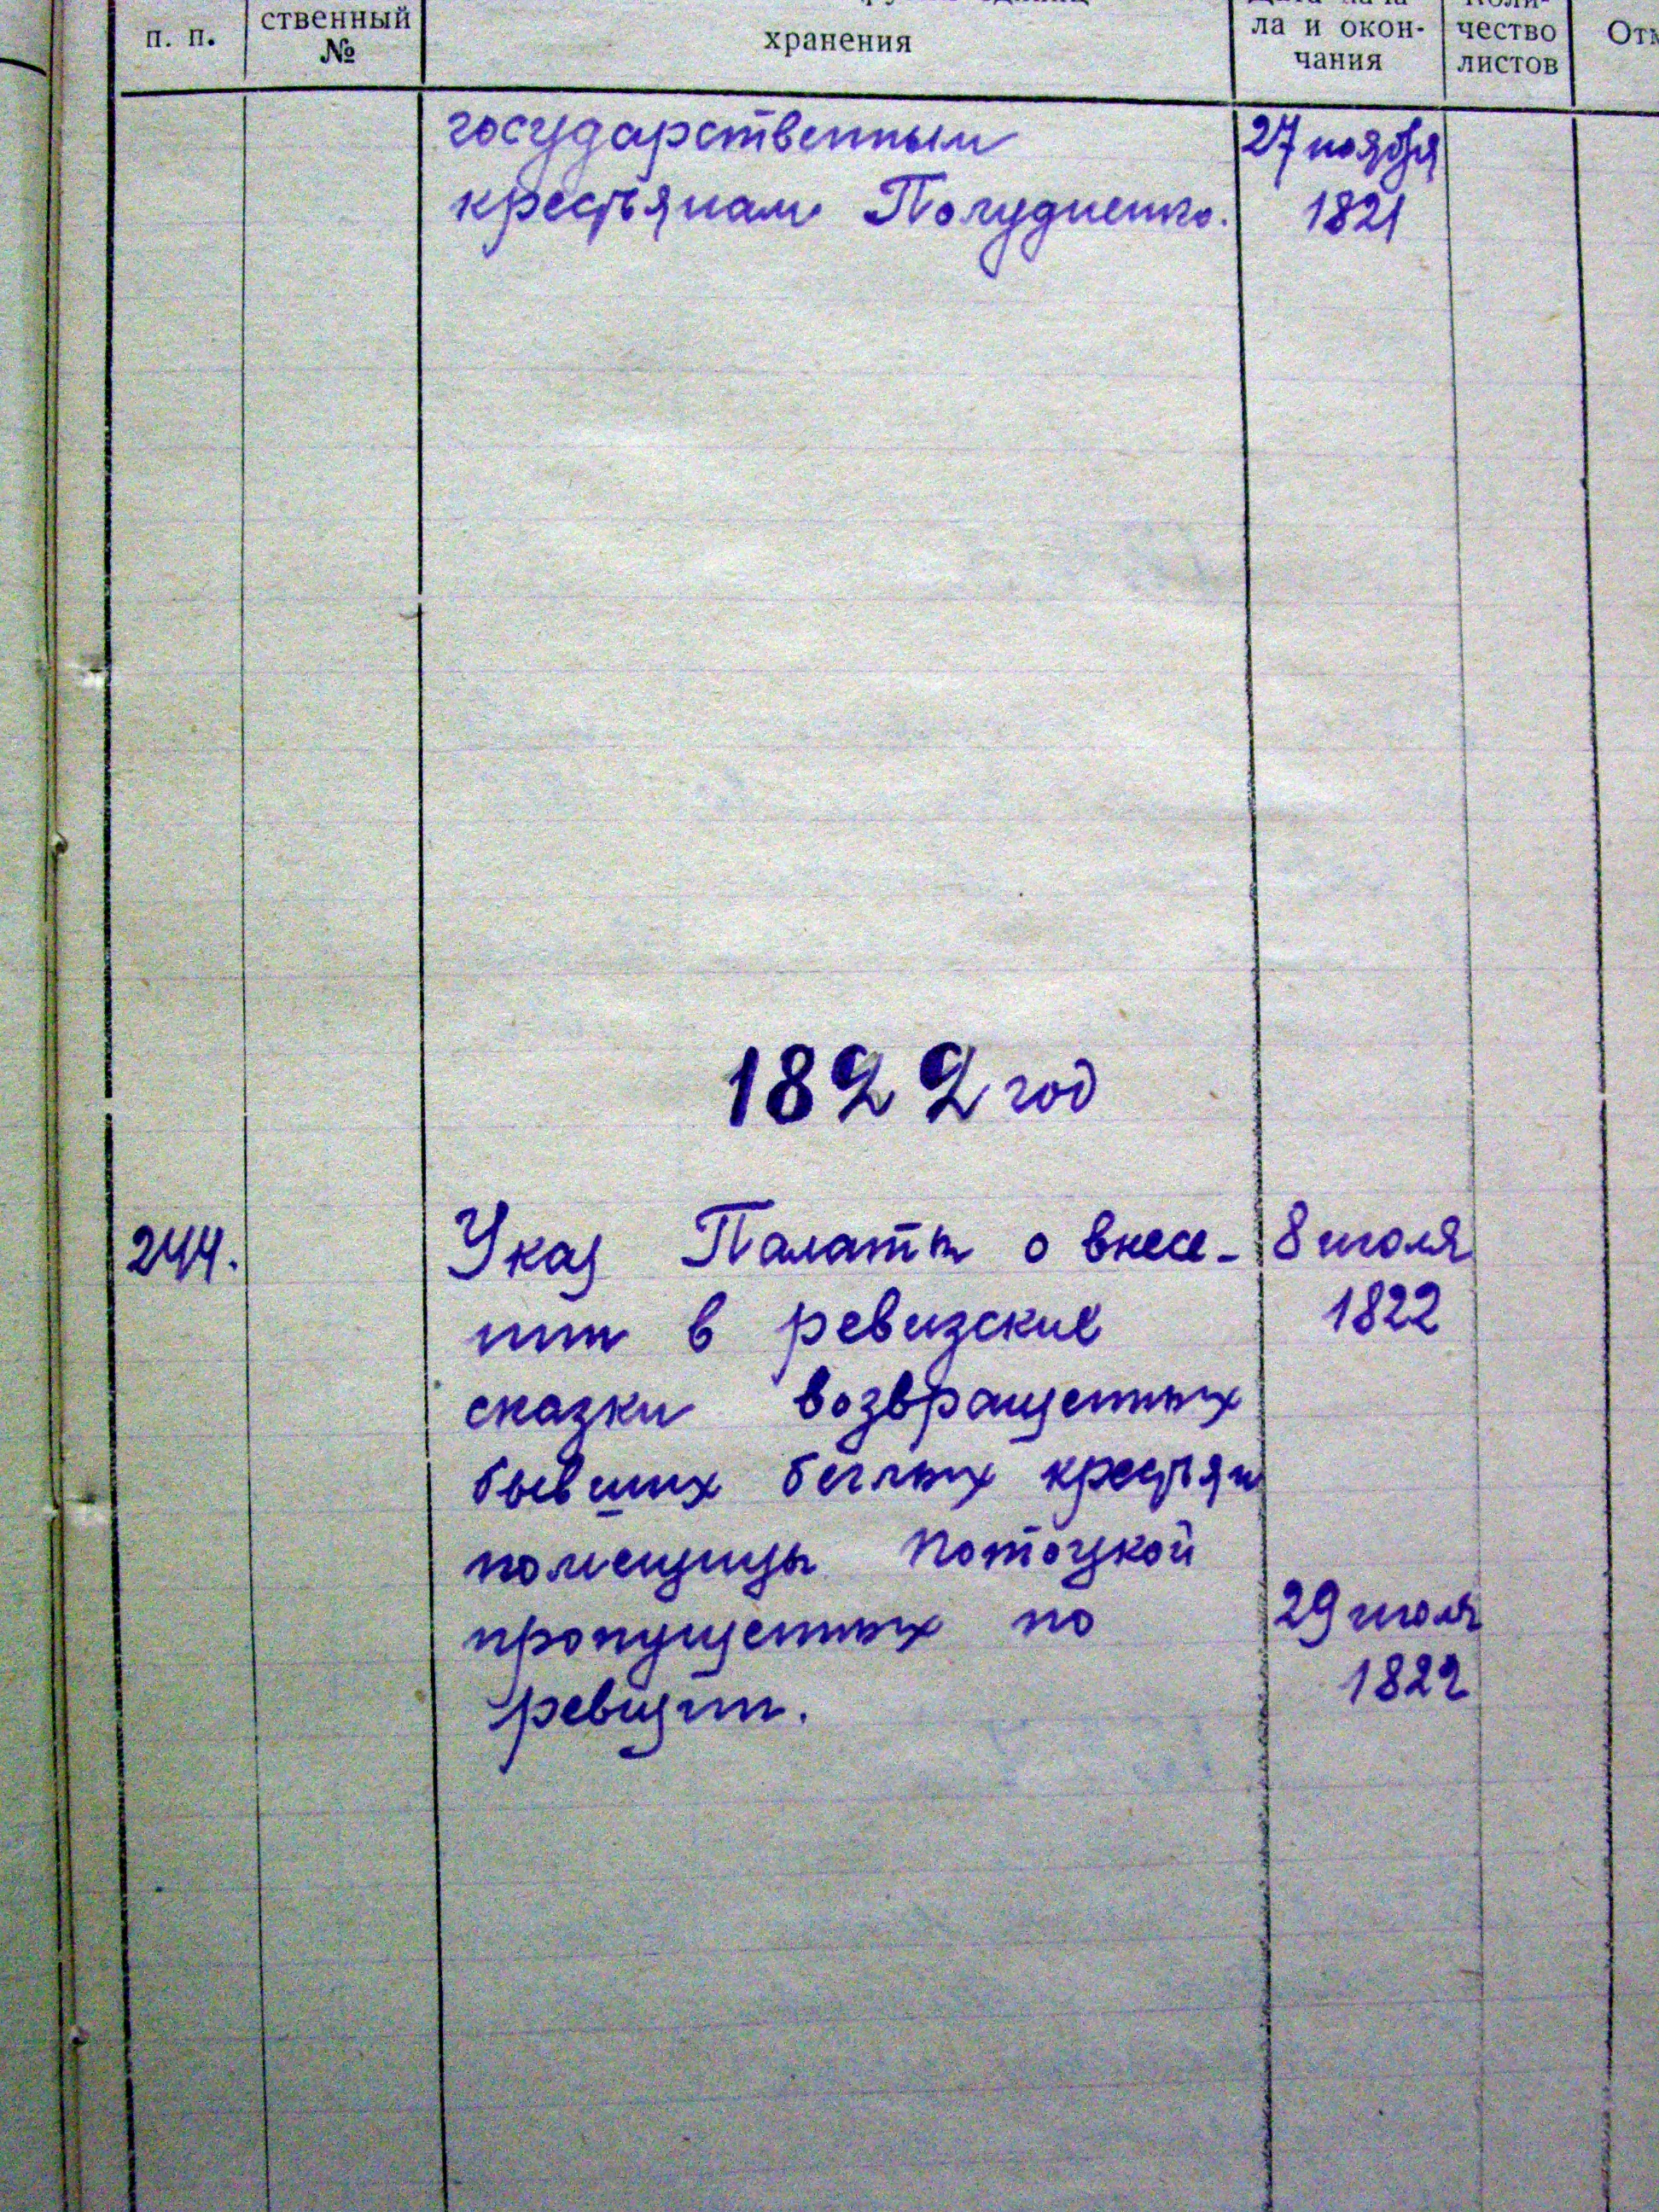 п. п.
ственный
№
хранения
ла и окон-
чания
чество
листов
государственным
крестьянам Полуденко.
27 ноября
1821
1822 год
244.
Указ Палаты о внесе-
нии в ревизские
сказки возвращенных
бывших беглых крестьян
помещицы Потоцкой
пропущенных по
ревизии.
8 июля
1822
29 июля
1822